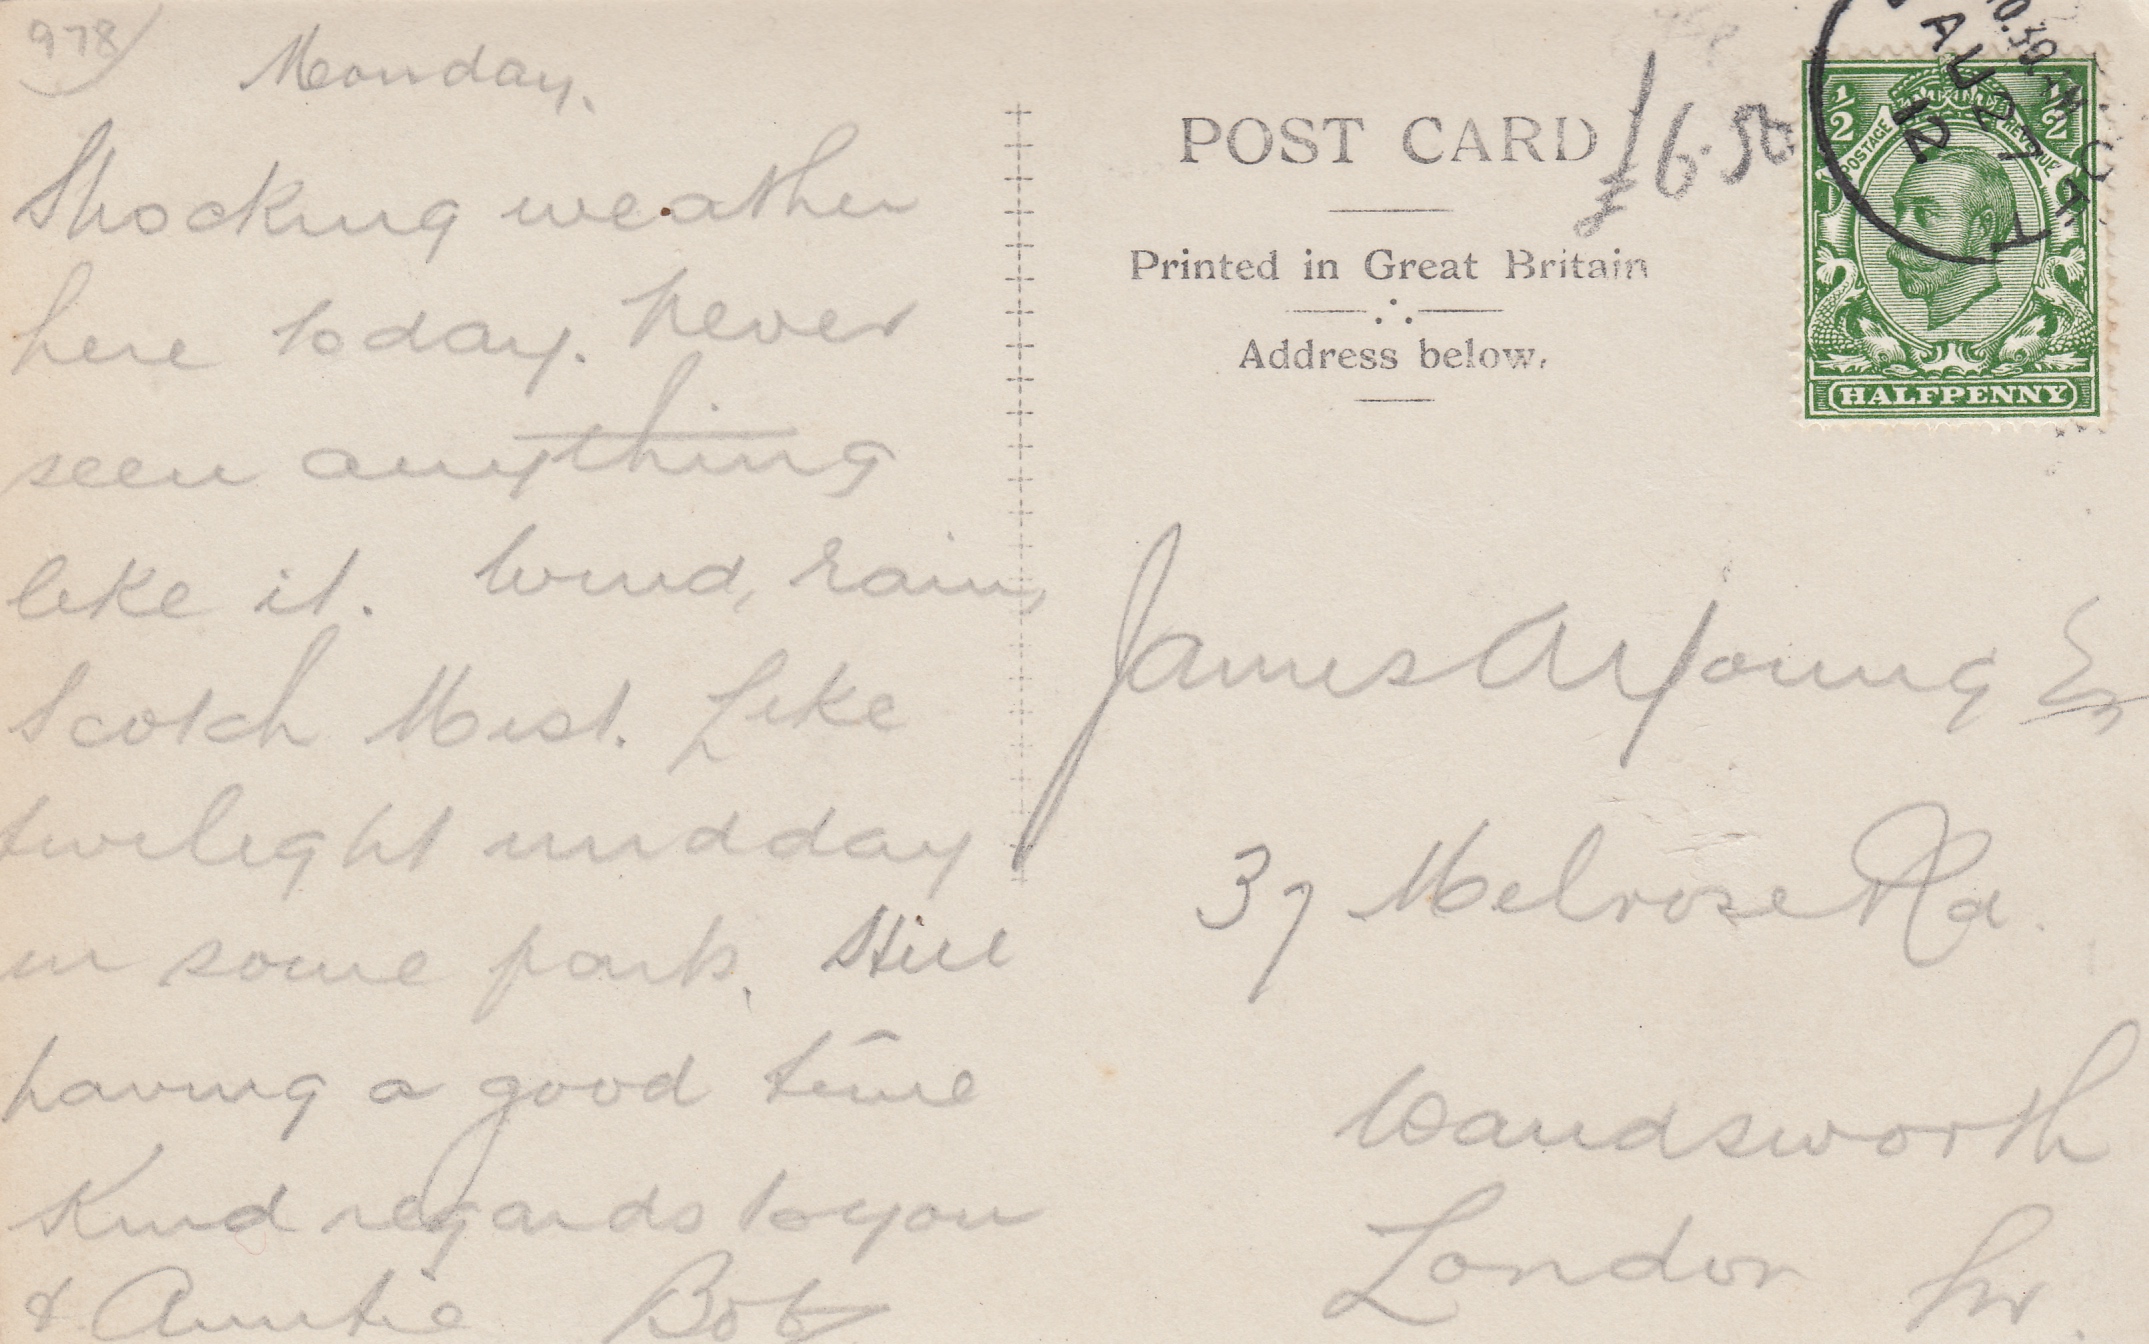 978/
Monday.
Shocking weather
here today. Never
seen anything
like it. Wind, rain,
Scotch Mist. Like
twilight midday
in some parts. Still
having a good time
Kind regards to you
& Auntie Bob
POST CARD
£6.50
Printed in Great Britain
Address below.
James A Young Esq
37 Melrose Rd.
Wandsworth
London SW.
10.30 AM
AU 27
12
POSTAGE REVENUE
½ ½
HALFPENNY